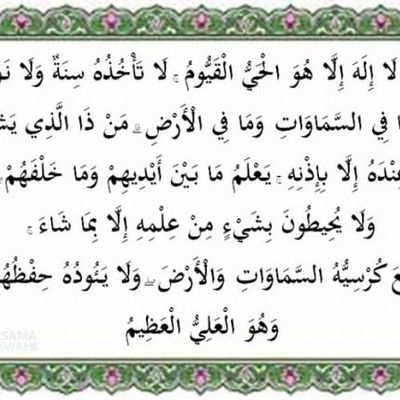 لَا إِلَهَ إِلَّا هُوَ الْحَيُّ الْقَيُّومُ ۚ لَا تَأْخُذُهُ سِنَةٌ وَلَا
فِي السَّمَاوَاتِ وَمَا فِي الْأَرْضِ ۗ مَنْ ذَا الَّذِي
إِلَّا بِإِذْنِهِ ۚ يَعْلَمُ مَا بَيْنَ أَيْدِيهِمْ وَمَا خَلْفَهُمْ ۖ
وَلَا يُحِيطُونَ بِشَيْءٍ مِنْ عِلْمِهِ إِلَّا بِمَا شَاءَ ۚ
كُرْسِيُّهُ السَّمَاوَاتِ وَالْأَرْضَ ۖ وَلَا يَئُودُهُ
وَهُوَ الْعَلِيُّ الْعَظِيمُ